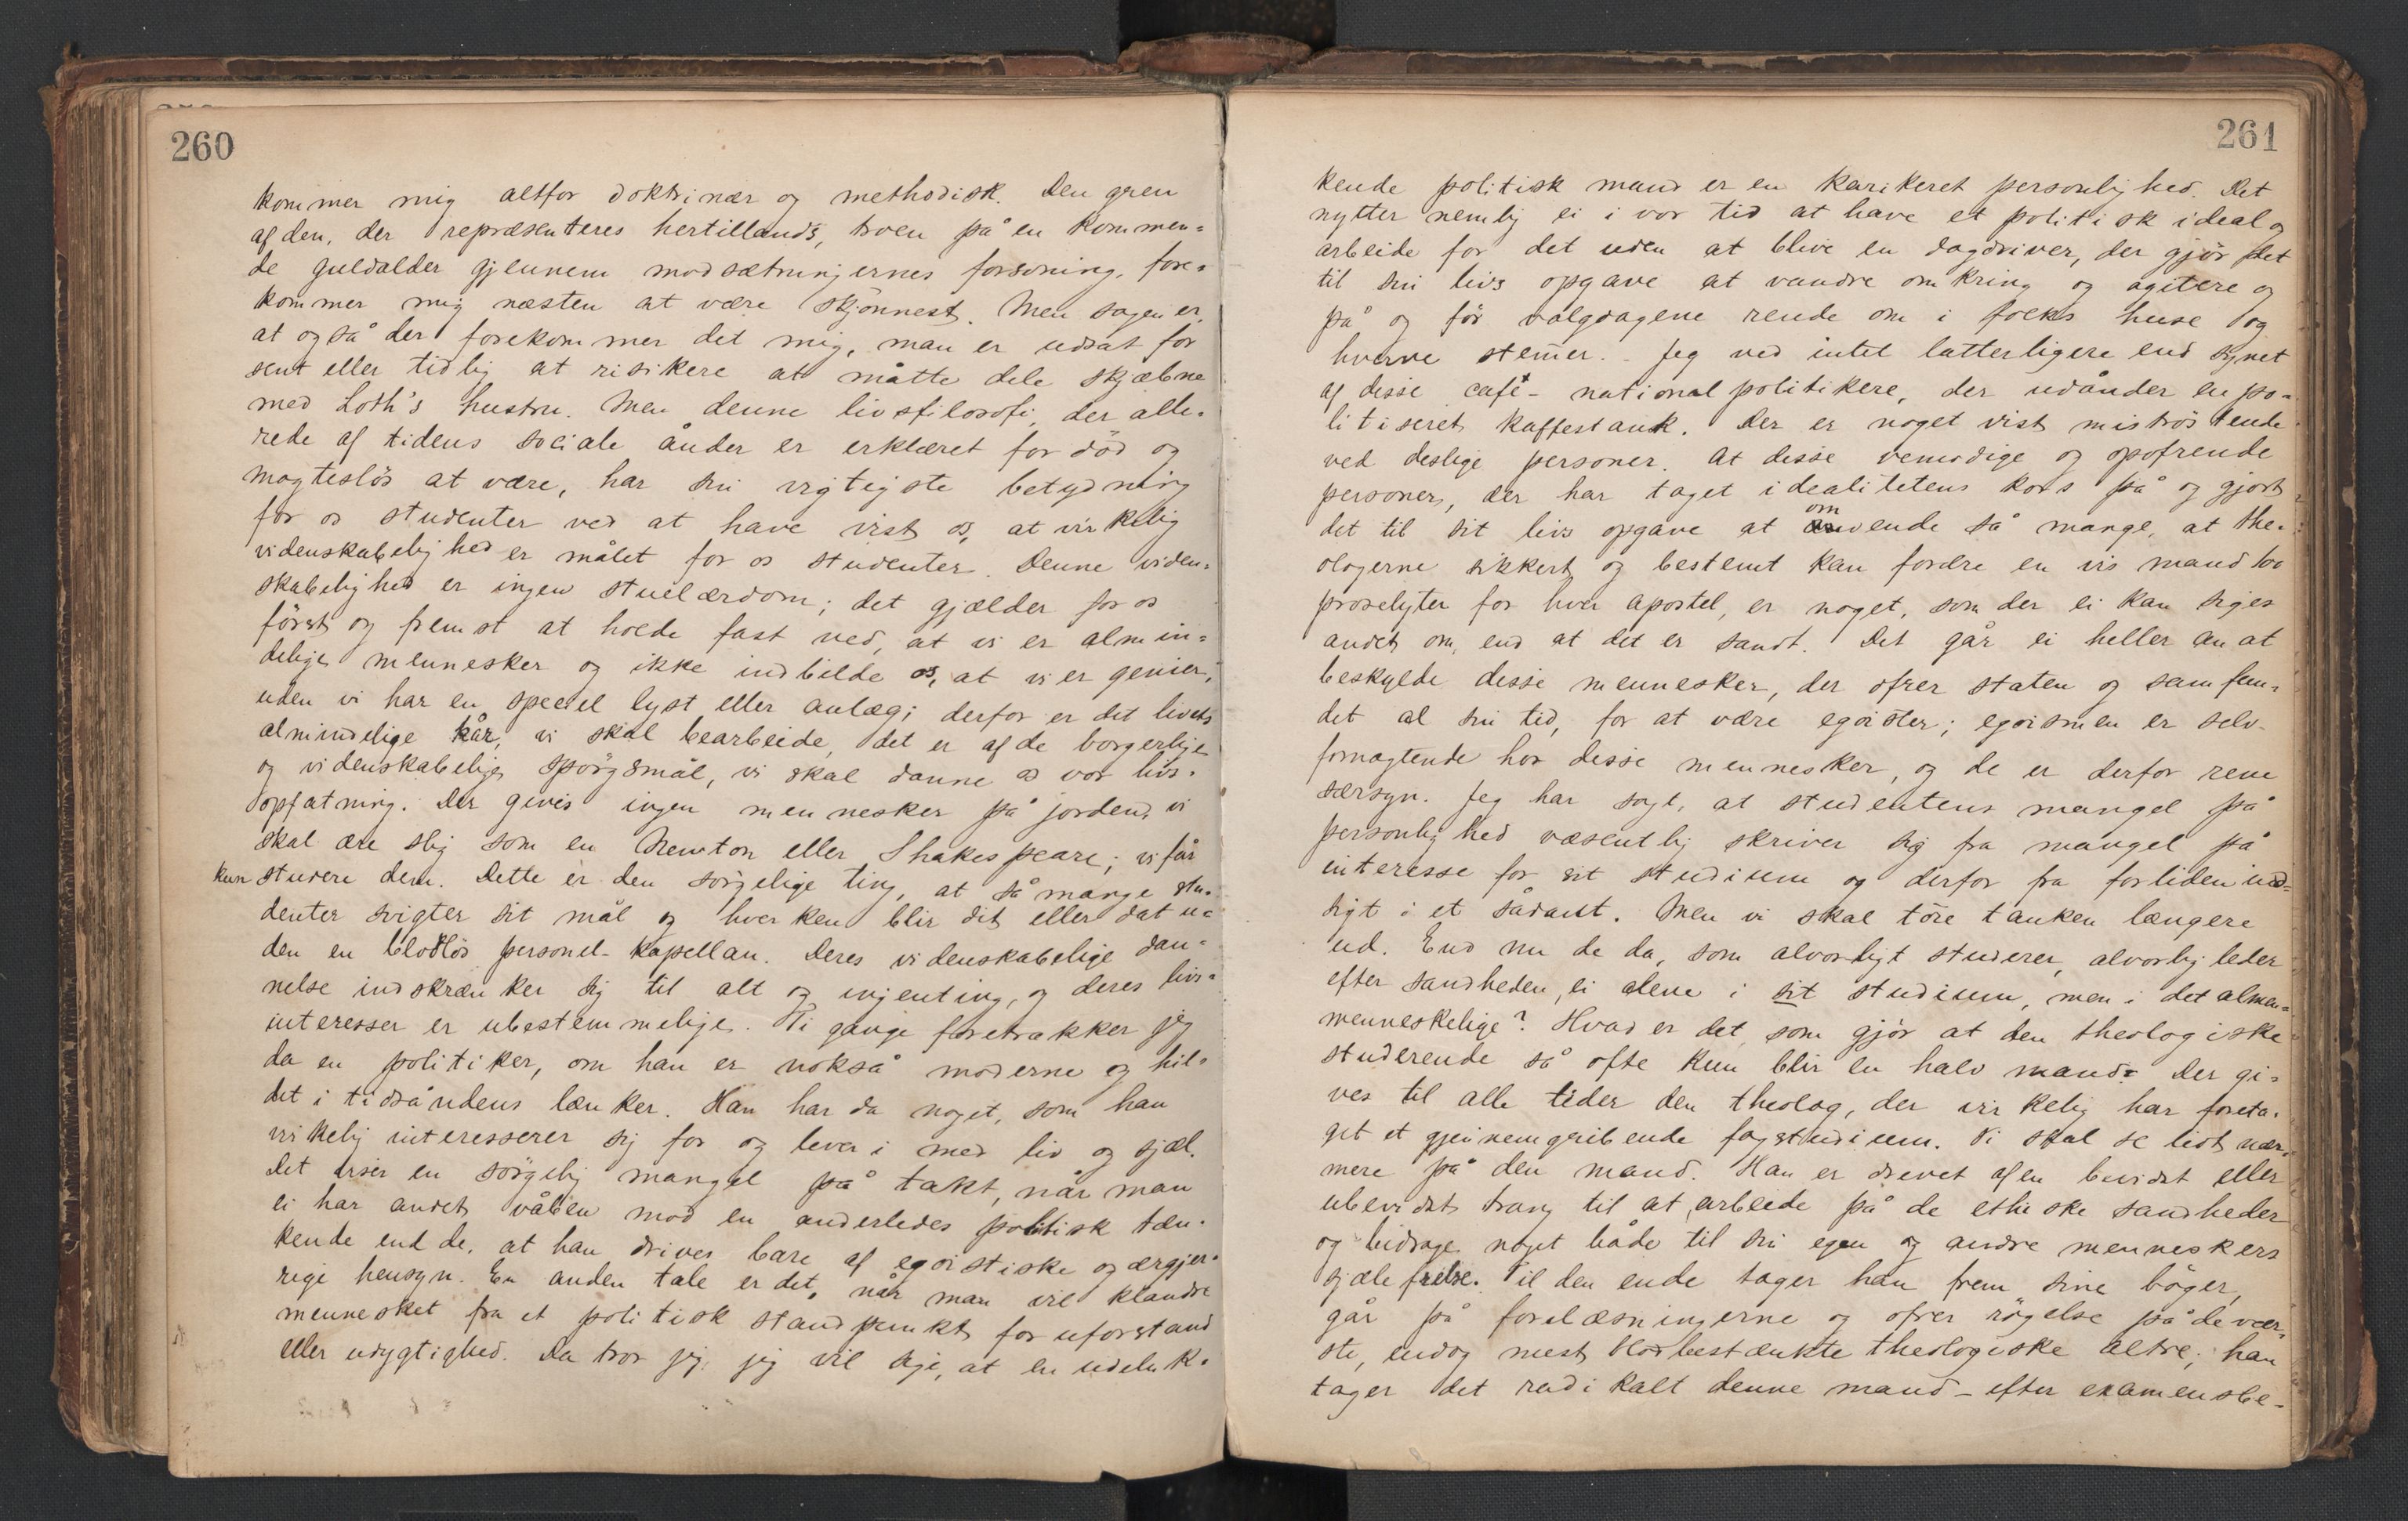 260
kommer mig altfor doktrinær og methodisk. Den gren
af den, der repræsenteres hertillands, troen på en kommen=
de guldalder gjennem modsætningernes forsoning, fore=
kommer mig næsten at være skjønnest. Men sagen er,
at også der forekommer det mig, man er udsat for
sent eller tidlig at risikere at måtte dele skjæbne
med Loth's hustru. Men denne livsfilosofi, der alle=
rede af tidens sociale ånder er erklæret for død og
magtesløs at være, har sin vigtigste betydning
for os studenter ved at have vist os, at virkelig
videnskabelighed er målet for os studenter. Denne viden=
skabelighed er ingen stuelærdom; det gjælder for os
først og fremst at holde fast ved, at vi er almin=
delige mennesker og ikke indbilde os, at vi er genier,
uden vi har en speciel lyst eller anlæg; derfor er det livets
almindelige kår, vi skal bearbeide, det er af de borgerlige
og videnskabelige spørgsmål, vi skal danne os vor livs=
opfatning. Der gives ingen mennesker på jorden, vi
skal ære slig som en Newton eller Shakespeare; vi får
kun studere dem. Dette er den sørgelige ting, at så mange stu=
denter svigter sit mål og hverken blir dit eller dat u=
den en blodløs personel-kapellan. Deres videnskabelige dan=
nelse indskrænker sig til alt og ingenting, og deres livs=
interesser er ubestemmelige. Ti gange foretrækker jeg
da en politiker, om han er nokså moderne og hil=
det i tidsåndens lænker. Han har da noget, som han
virkelig interesserer sig for og lever i med liv og sjæl.
Det viser en sørgelig mangel på takt, når man
ei har andet våben mod en anderledes politisk tæn=
kende end de, at han drives bare af egoistiske og ærgjer=
rige hensyn. En anden tale er det, når man vil klandre
mennesket fra et politisk standpunkt for uforstand
eller udygtighed. Da tror jeg, jeg vil sige, at en udeluk=
261
kende politisk mand er en karikeret personlighed. Det
nytter nemlig ei i vor tid at have et politisk ideal og
arbeide for det uden at blive en dagdriver, der gjør det
til sin livs opgave at vandre omkring og agitere og
på og før valgdagene rende om i folks huse og
hverve stemer. - Jeg ved intet latterligere end synet
af disse café- national politikere, der udånder en po=
litiseret kaffestank. Der er noget vist mistrøstende
ved deslige personer. At disse vemodige og opofrende
personer, der har taget idealitetens kors på og gjort
det til sit livs opgave at omvende så mange, at the=
ologerne sikkert og bestemt kan fordre en vis mand 100
proselyter for hver apostel, er noget, som der ei kan siges
andet om, end at det er sandt. Det går ei heller an at
beskylde disse mennesker, der ofrer staten og samfun=
det al sin tid, for at være egoister; egoismen er selv-
fornægtende hos disse mennesker, og de er derfor rene
særsyn. Jeg har sagt, at studentens mangel på
personlighed væsentlig skriver sig fra mangel på
interesse for sit studium og derfor fra forliden ind=
sigt i et sådant. Men vi skal tøre tanken længere
ud. End nu de da, som alvorligt studerer, alvorlig leder
efter sandheden, ei alene i sit studium, men i det almen=
menneskelige? Hvad er det, som gjør at den theologiske
studerende så ofte kun blir en halv mand? Der gi=
ves til alle tider den theolog, der virkelig har foreta=
get et gjennemgribende fagstudium. Vi skal se lidt nær=
mere på den mand. Han er drevet af en bevidst eller
ubevidst trang til at arbeide på de ethiske sandheder
og bidrage noget både til sin egen og andre menneskers
sjælefrelse. Til den ende tager han frem sine bøger,
går på forelæsningerne og ofrer røgelse på de vær=
ste, endog mest blodbestænkte theologiske altre; han
tager det radikalt denne mand - efter examensbe=